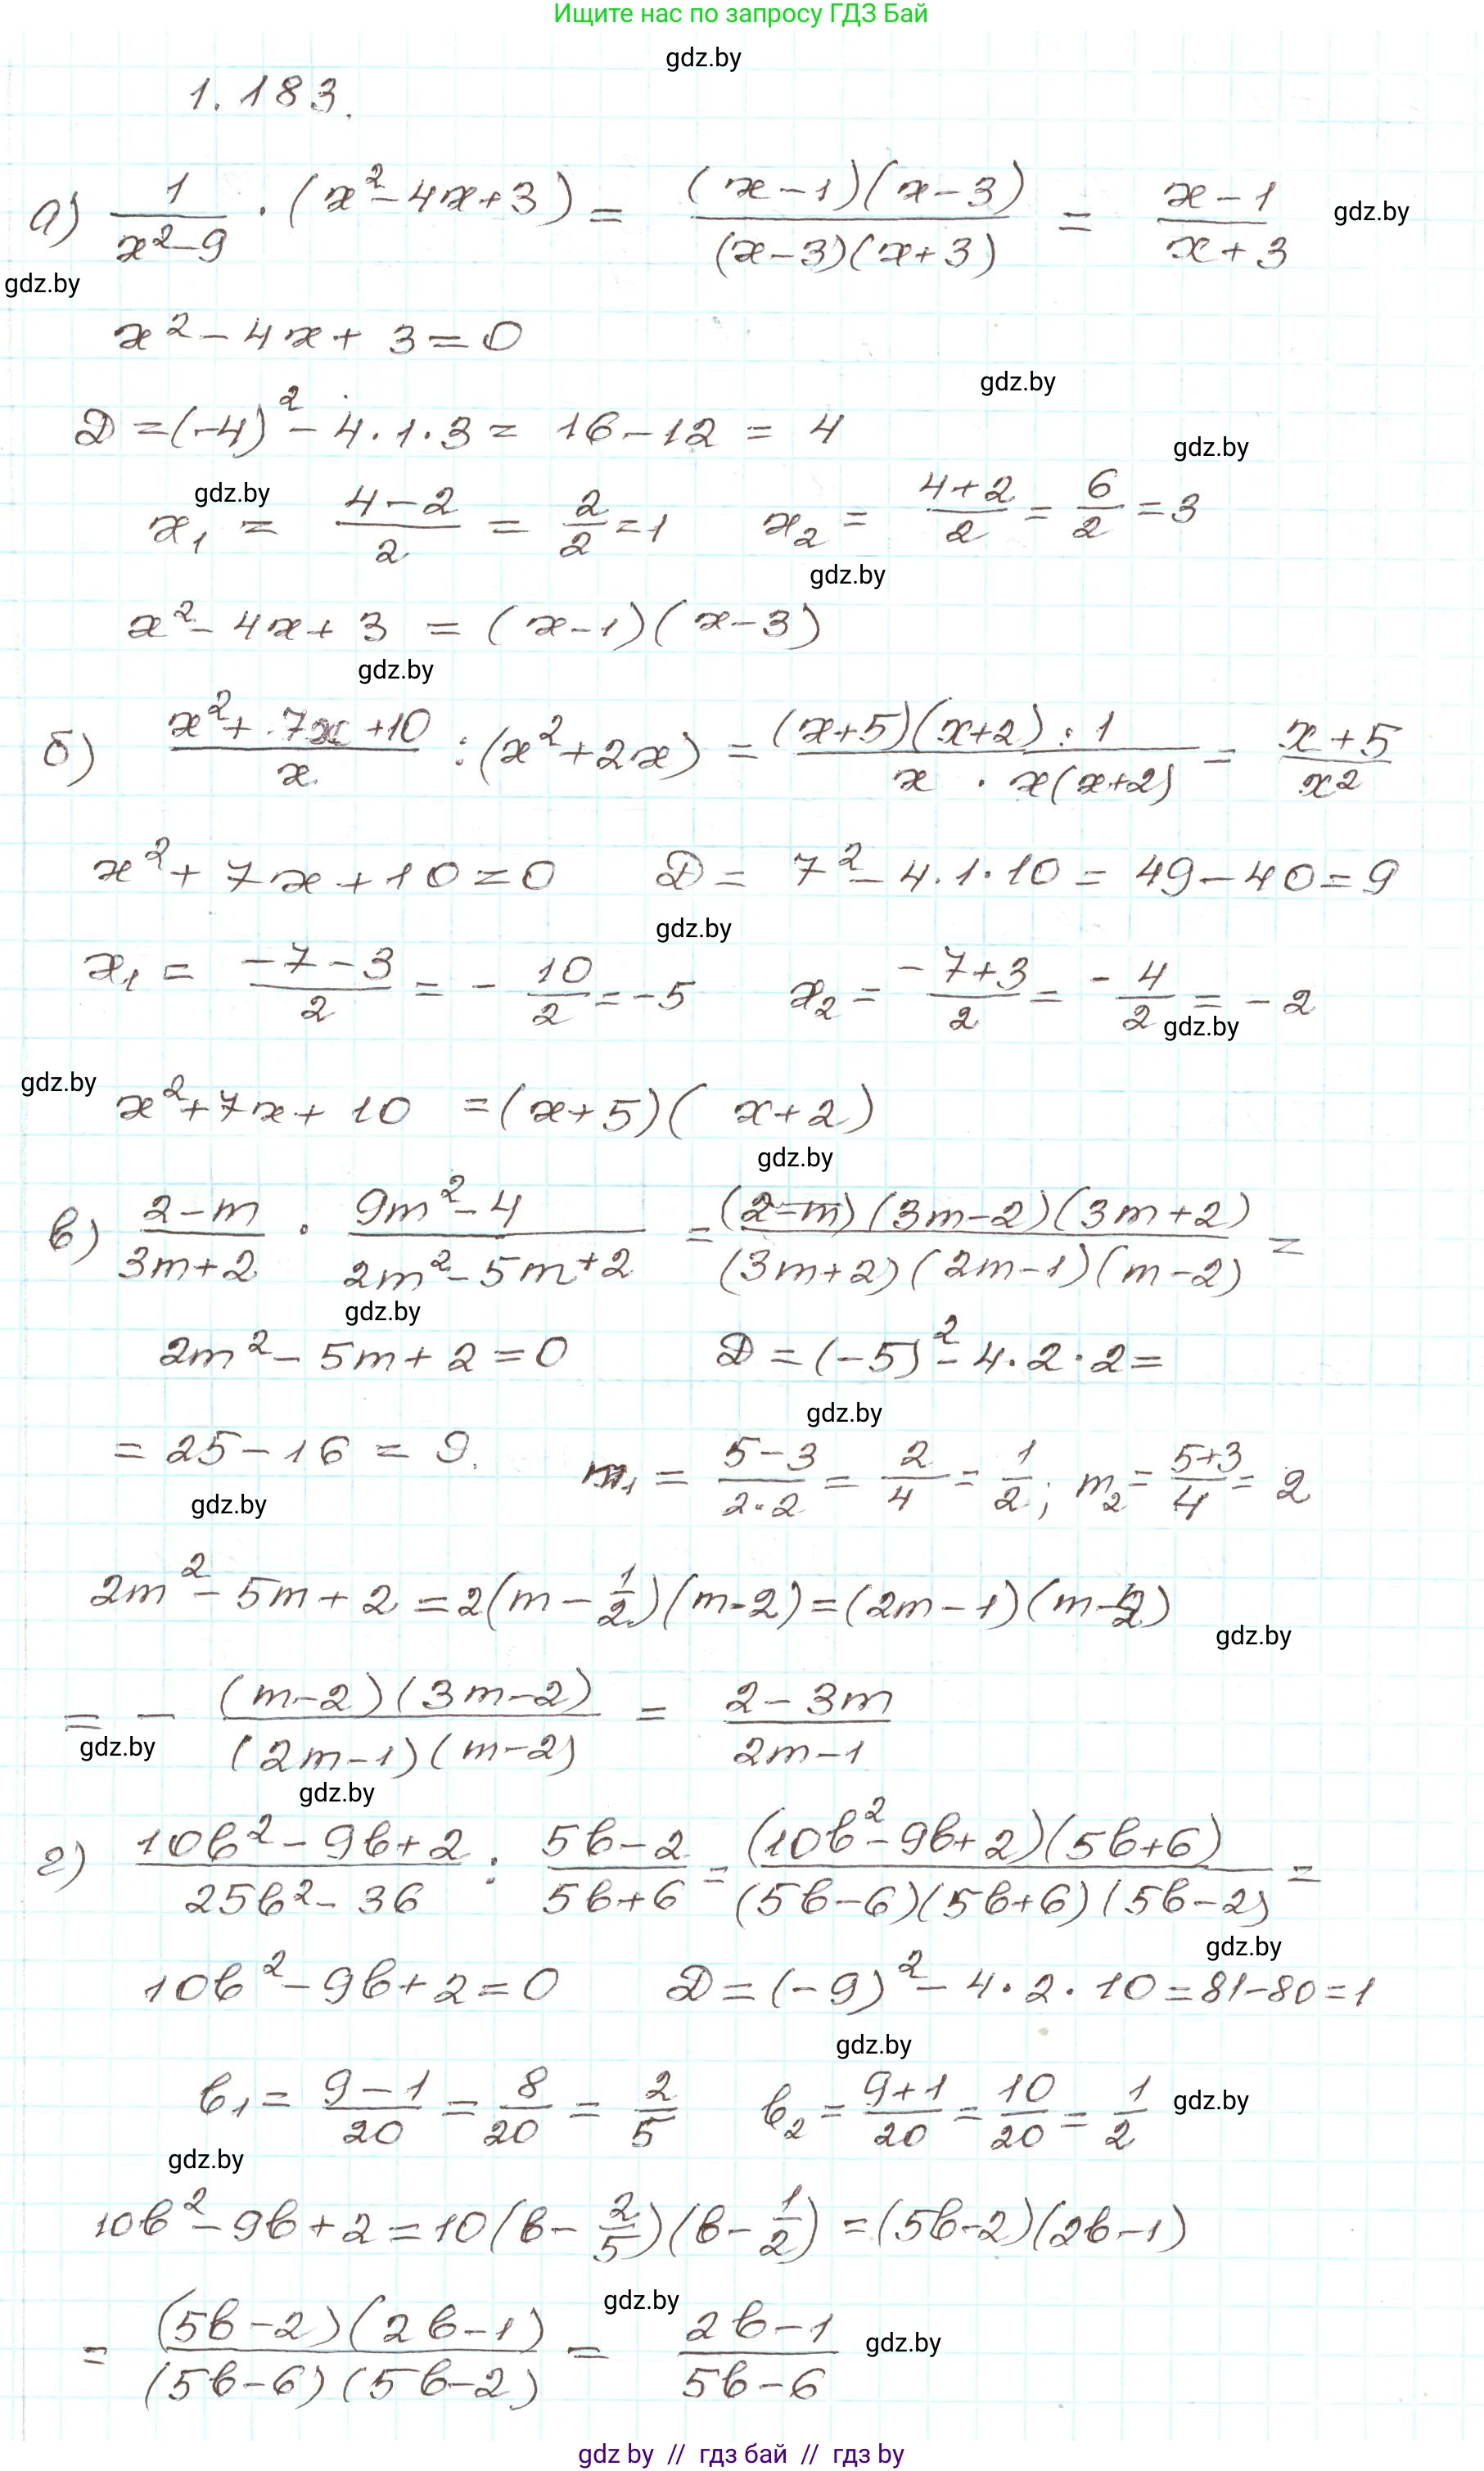 Ищите нас по запросу ГДЗ Бай
gdz.by
1.183.
а) 1/(x²-9) · (x²-4x+3) = (x-1)(x-3)/((x-3)(x+3)) = (x-1)/(x+3) gdz.by
gdz.by
x²-4x+3=0
gdz.by
D=(-4)²-4·1·3= 16-12 = 4
gdz.by
gdz.by
x₁ = (4-2)/2 = 2/2 =1 x₂ = (4+2)/2 = 6/2 =3
gdz.by
x²-4x+3 = (x-1)(x-3)
gdz.by
б) (x²+7x+10)/x : (x²+2x) = (x+5)(x+2)·1/(x·x(x+2)) = (x+5)/x²
x²+7x+10=0 D= 7²-4·1·10= 49-40=9
gdz.by
x₁ = (-7-3)/2 = -10/2 =-5 x₂ = (-7+3)/2 = -4/2 = -2
gdz.by
gdz.by
x²+7x+10 =(x+5)(x+2)
gdz.by
в) (2-m)/(3m+2) · (9m²-4)/(2m²-5m+2) = (2-m)(3m-2)(3m+2)/((3m+2)(2m-1)(m-2)) =
gdz.by
2m²-5m+2=0 D=(-5)²-4·2·2=
gdz.by
= 25-16 = 9. m₁ = (5-3)/(2·2) = 2/4 = 1/2; m₂ = (5+3)/4 = 2
gdz.by
2m²-5m+2=2(m-1/2)(m-2)=(2m-1)(m-2)
gdz.by
= - (m-2)(3m-2)/((2m-1)(m-2)) = (2-3m)/(2m-1)
gdz.by
gdz.by
г) (10b²-9b+2)/(25b²-36) : (5b-2)/(5b+6) = (10b²-9b+2)(5b+6)/((5b-6)(5b+6)(5b-2)) =
gdz.by
10b²-9b+2=0 D=(-9)²-4·2·10=81-80=1
gdz.by
b₁ = (9-1)/20 = 8/20 = 2/5 b₂ = (9+1)/20 = 10/20 = 1/2 gdz.by
gdz.by
10b²-9b+2=10(b-2/5)(b-1/2) =(5b-2)(2b-1)
gdz.by
= (5b-2)(2b-1)/((5b-6)(5b-2)) = (2b-1)/(5b-6) gdz.by
gdz by // гдз бай // гдз by